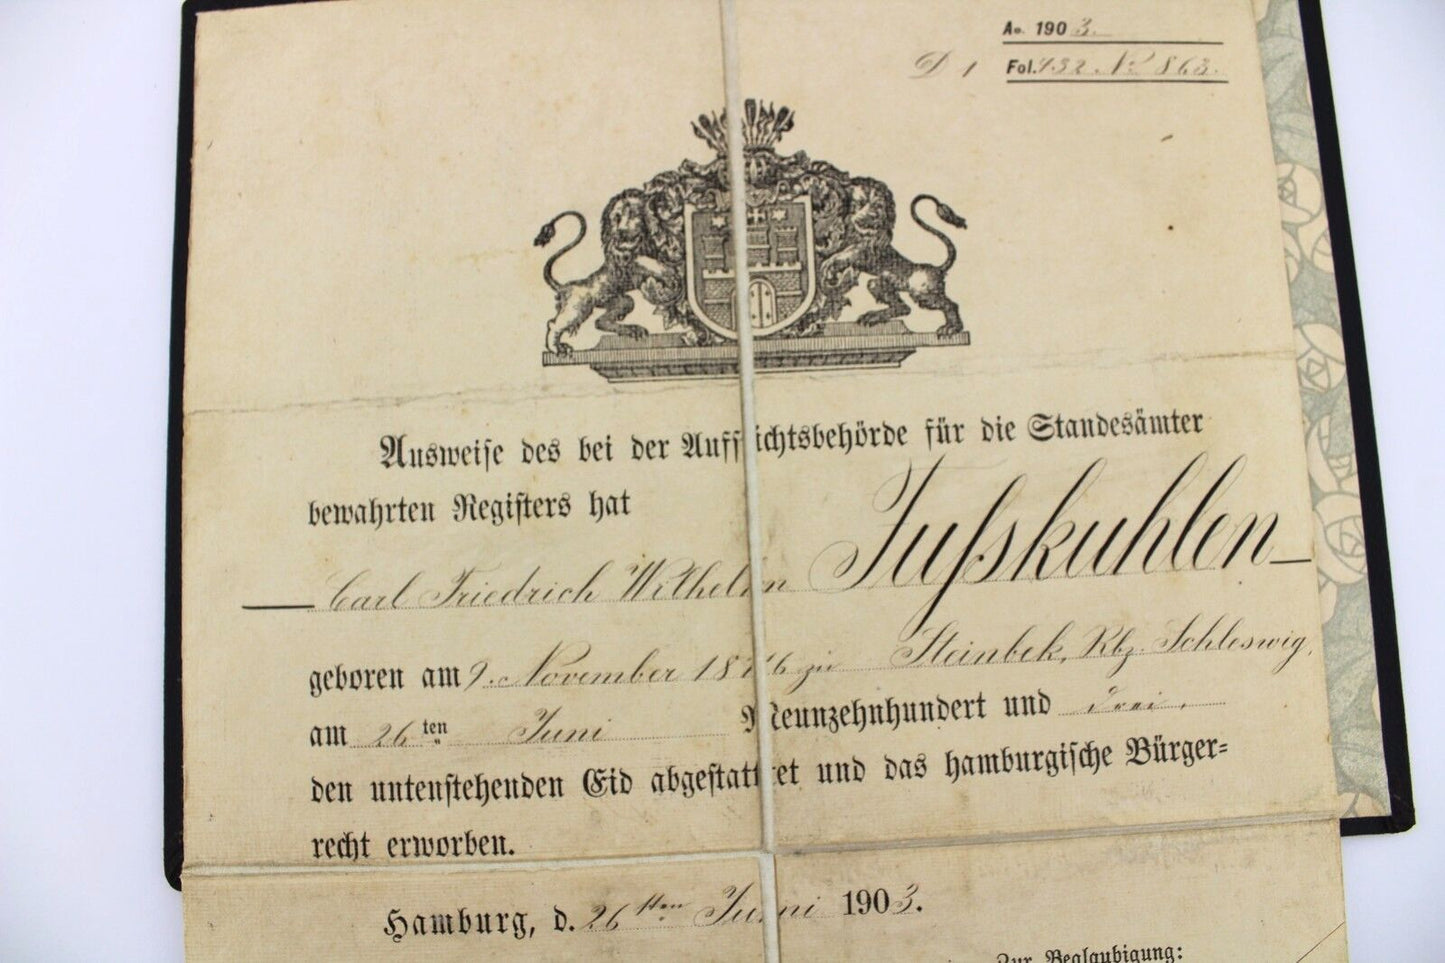 Ao. 1903.
D 1 Fol. 432. No 863.
Ausweise des bei der Aufsichtsbehörde für die Standesämter
bewahrten Registers hat
Carl Friedrich Wilhelm Fußkuhlen
geboren am 9. November 1876 zu Steinbek, Rbz. Schleswig,
am 26ten Juni Neunzehnhundert und drei.
den untenstehenden Eid abgestattet und das hamburgische Bürger=
recht erworben.
Hamburg, d. 26sten Juni 1903.
Zur Beglaubigung: